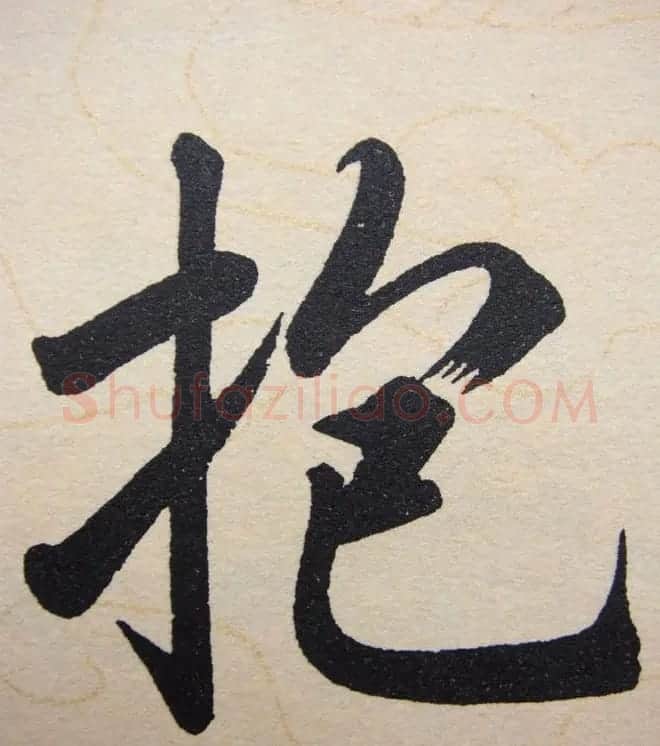 抱
Shufaziliao.COM